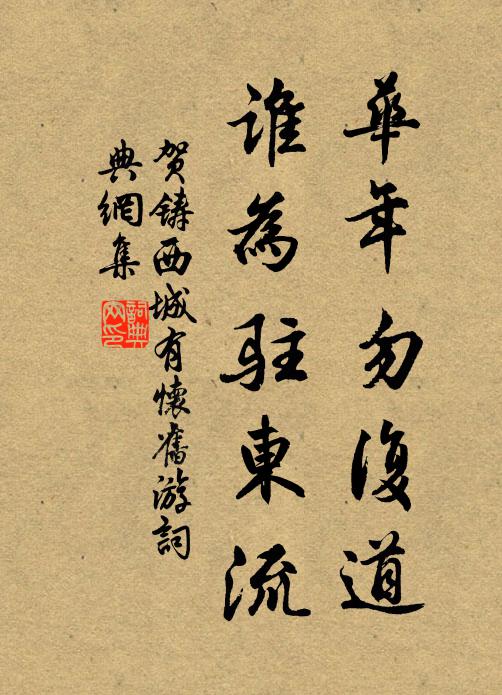 華年勿復道
誰為駐東流
賀鑄西城有懷舊游詞
典網集
詞典
网印